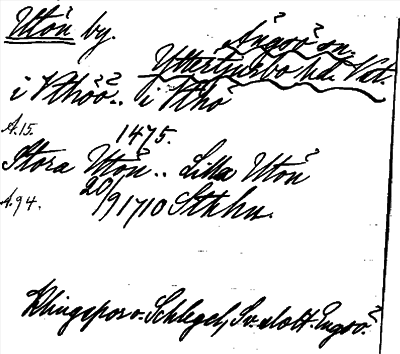 Utön by.
Ängsö sn.
Yttertjurbo hd. Vstm.
i Vthöö.. i Vthö
A.15. 1475.
Stora Utön.. Lilla Utön
A.94. 20/9 1710 Sthlm.
Klingspor o. Schlegel, Sv. slott. Engsö.